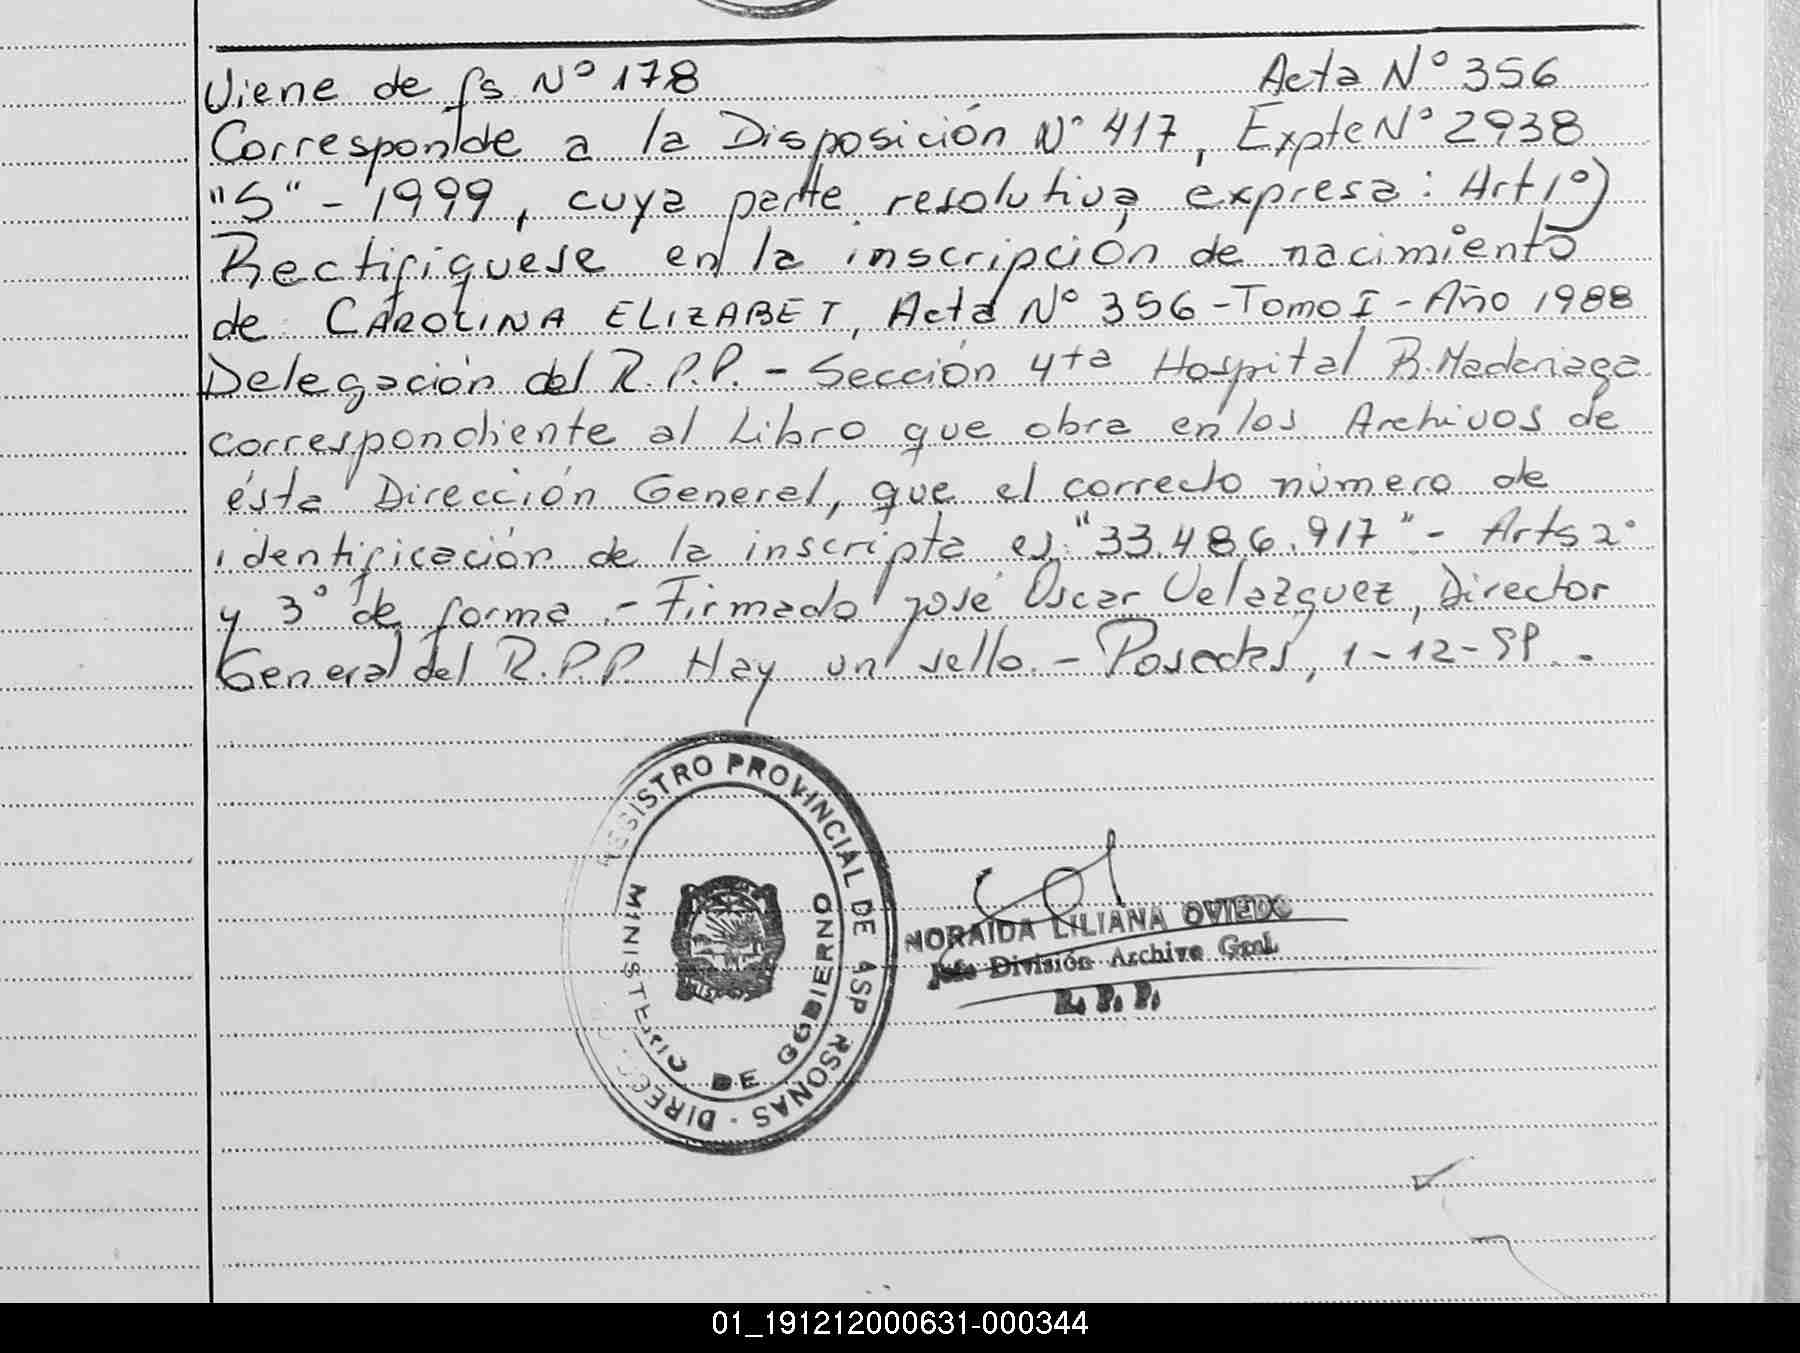 Viene de fs Nº 178 Acta Nº 356
Corresponde a la Disposición Nº 417, Expte Nº 2938
"S" - 1999, cuya parte resolutiva expresa: Art 1º)
Rectifiquese en la inscripción de nacimiento
de CAROLINA ELIZABET, Acta Nº 356 - Tomo I - Año 1988
Delegación del R.P.P. - Sección 4ta Hospital R. Madariaga
correspondiente al Libro que obra en los Archivos de
ésta Dirección General, que el correcto número de
identificación de la inscripta es "33.486.917" - Arts 2º
y 3º de forma. - Firmado José Oscar Velazquez, Director
General del R.P.P. Hay un sello. - Posadas, 1-12-99. -
REGISTRO PROVINCIAL DE ASP RSONAS - DIRECC
MINISTERIO DE GOBIERNO
NORAIDA LILIANA OVIEDO
Jefe División Archivo Gral.
R. P. P.
01_191212000631-000344